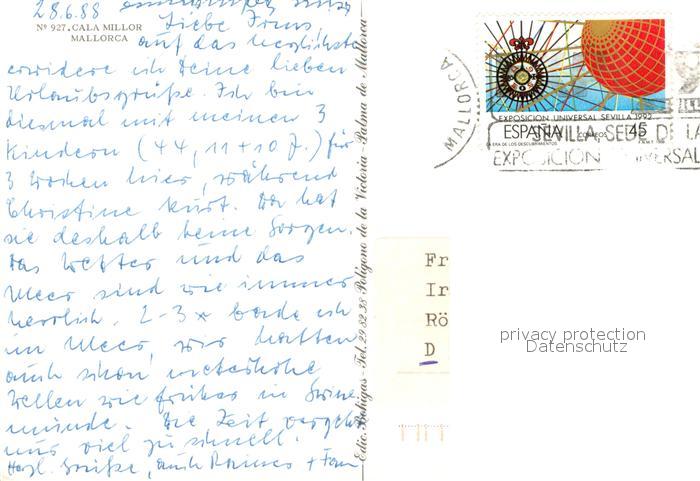 28.6.88
Nº 927. CALA MILLOR
MALLORCA
Liebe Irms
auf das herzlichste
erwidere ich Deine lieben
Urlaubsgrüße. Ich bin
diesmal mit meinen 3
Kindern (44, 11 + 10 J.) für
3 Wochen hier, während
Christine kurt. Da hat
sie deshalb keine Sorgen.
Das Wetter und das
Meer sind wie immer
herrlich. 2-3 x bade ich
im Meer, wir hatten
auch schon meterhohe
Wellen wie früher in Swine
münde. Die Zeit vergeht
uns viel zu schnell.
Herzl. Grüße, auch + Fam
Edic. Bohigas - Tel. 29 82 38 Polígono de la Victoria - Palma de Mallorca
EXPOSICION UNIVERSAL SEVILLA 1992
ESPAÑA CORREOS 45
LA ERA DE LOS DESCUBRIMIENTOS
MALLORCA
SEVILLA SEDE DE LA
EXPOSICION UNIVERSAL
Fr
Ir
Rö
D
privacy protection
Datenschutz